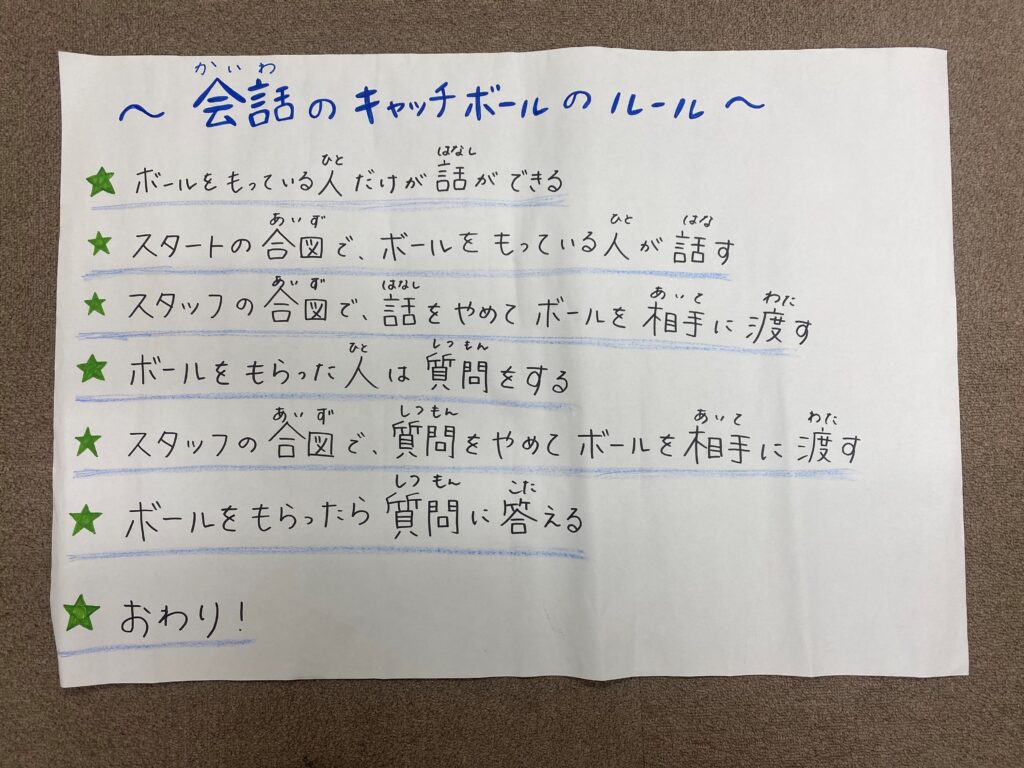 かいわ
〜 会話のキャッチボールのルール 〜
ひと はなし
★ ボールをもっている人だけが話ができる
あいず ひと はな
★ スタートの合図で、ボールをもっている人が話す
あいず はなし あいて わた
★ スタッフの合図で、話をやめてボールを相手に渡す
ひと しつもん
★ ボールをもらった人は質問をする
あいず しつもん あいて わた
★ スタッフの合図で、質問をやめてボールを相手に渡す
しつもん こた
★ ボールをもらったら質問に答える
★ おわり!